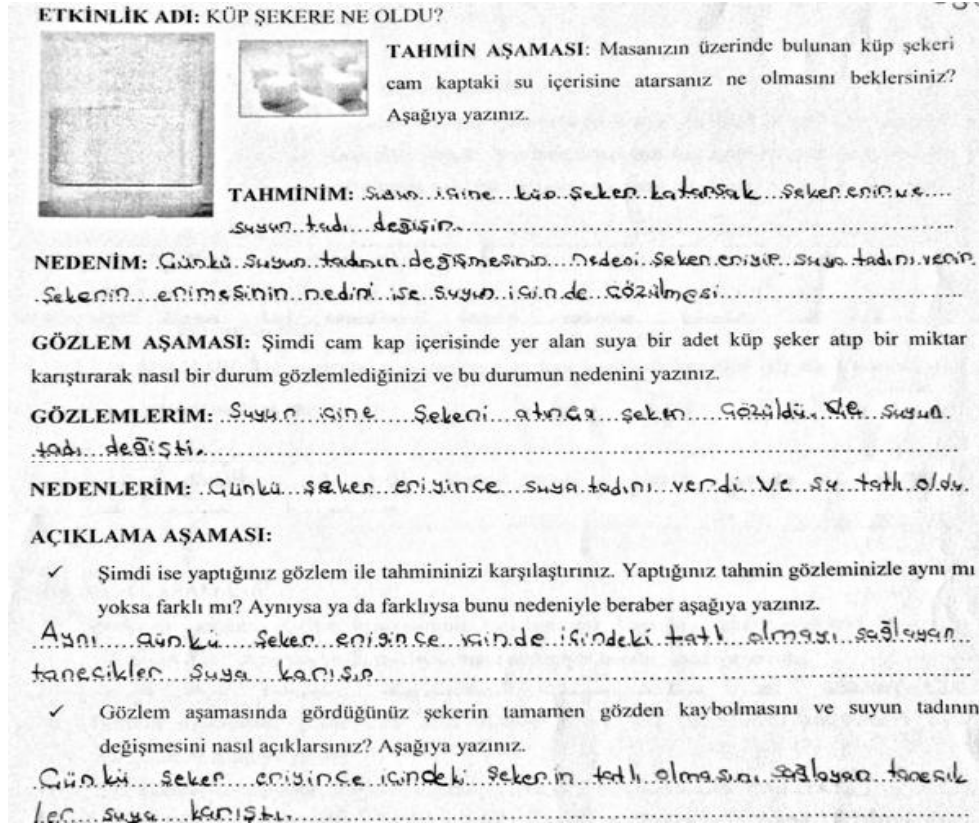 ETKİNLİK ADI: KÜP ŞEKERE NE OLDU?
TAHMİN AŞAMASI: Masanızın üzerinde bulunan küp şekeri
cam kaptaki su içerisine atarsanız ne olmasını beklersiniz?
Aşağıya yazınız.
TAHMİNİM: Suyun içine küp şeker katarsak şeker erir ve
suyun tadı değişir.
NEDENİM: Çünkü suyun tadının değişmesinin nedeni şeker eriyip suya tadını verir
Şekerin erimesinin nedini ise suyun içinde çözülmesi
GÖZLEM AŞAMASI: Şimdi cam kap içerisinde yer alan suya bir adet küp şeker atıp bir miktar
karıştırarak nasıl bir durum gözlemlediğinizi ve bu durumun nedenini yazınız.
GÖZLEMLERİM: Suyun içine şekeri atınca şeker çözüldü ve suyun
tadı değişti.
NEDENLERİM: Çünkü şeker eriyince suya tadını verdi ve su tatlı oldu.
AÇIKLAMA AŞAMASI:
✓ Şimdi ise yaptığınız gözlem ile tahmininizi karşılaştırınız. Yaptığınız tahmin gözleminizle aynı mı
yoksa farklı mı? Aynıysa ya da farklıysa bunu nedeniyle beraber aşağıya yazınız.
Aynı çünkü şeker eriyince içinde içindeki tatlı olmayı sağlayan
tanecikler suya karışır
✓ Gözlem aşamasında gördüğünüz şekerin tamamen gözden kaybolmasını ve suyun tadının
değişmesini nasıl açıklarsınız? Aşağıya yazınız.
Çünkü şeker eriyince içindeki şekerin tatlı olmasını sağlayan tanecik
ler suya karıştı.